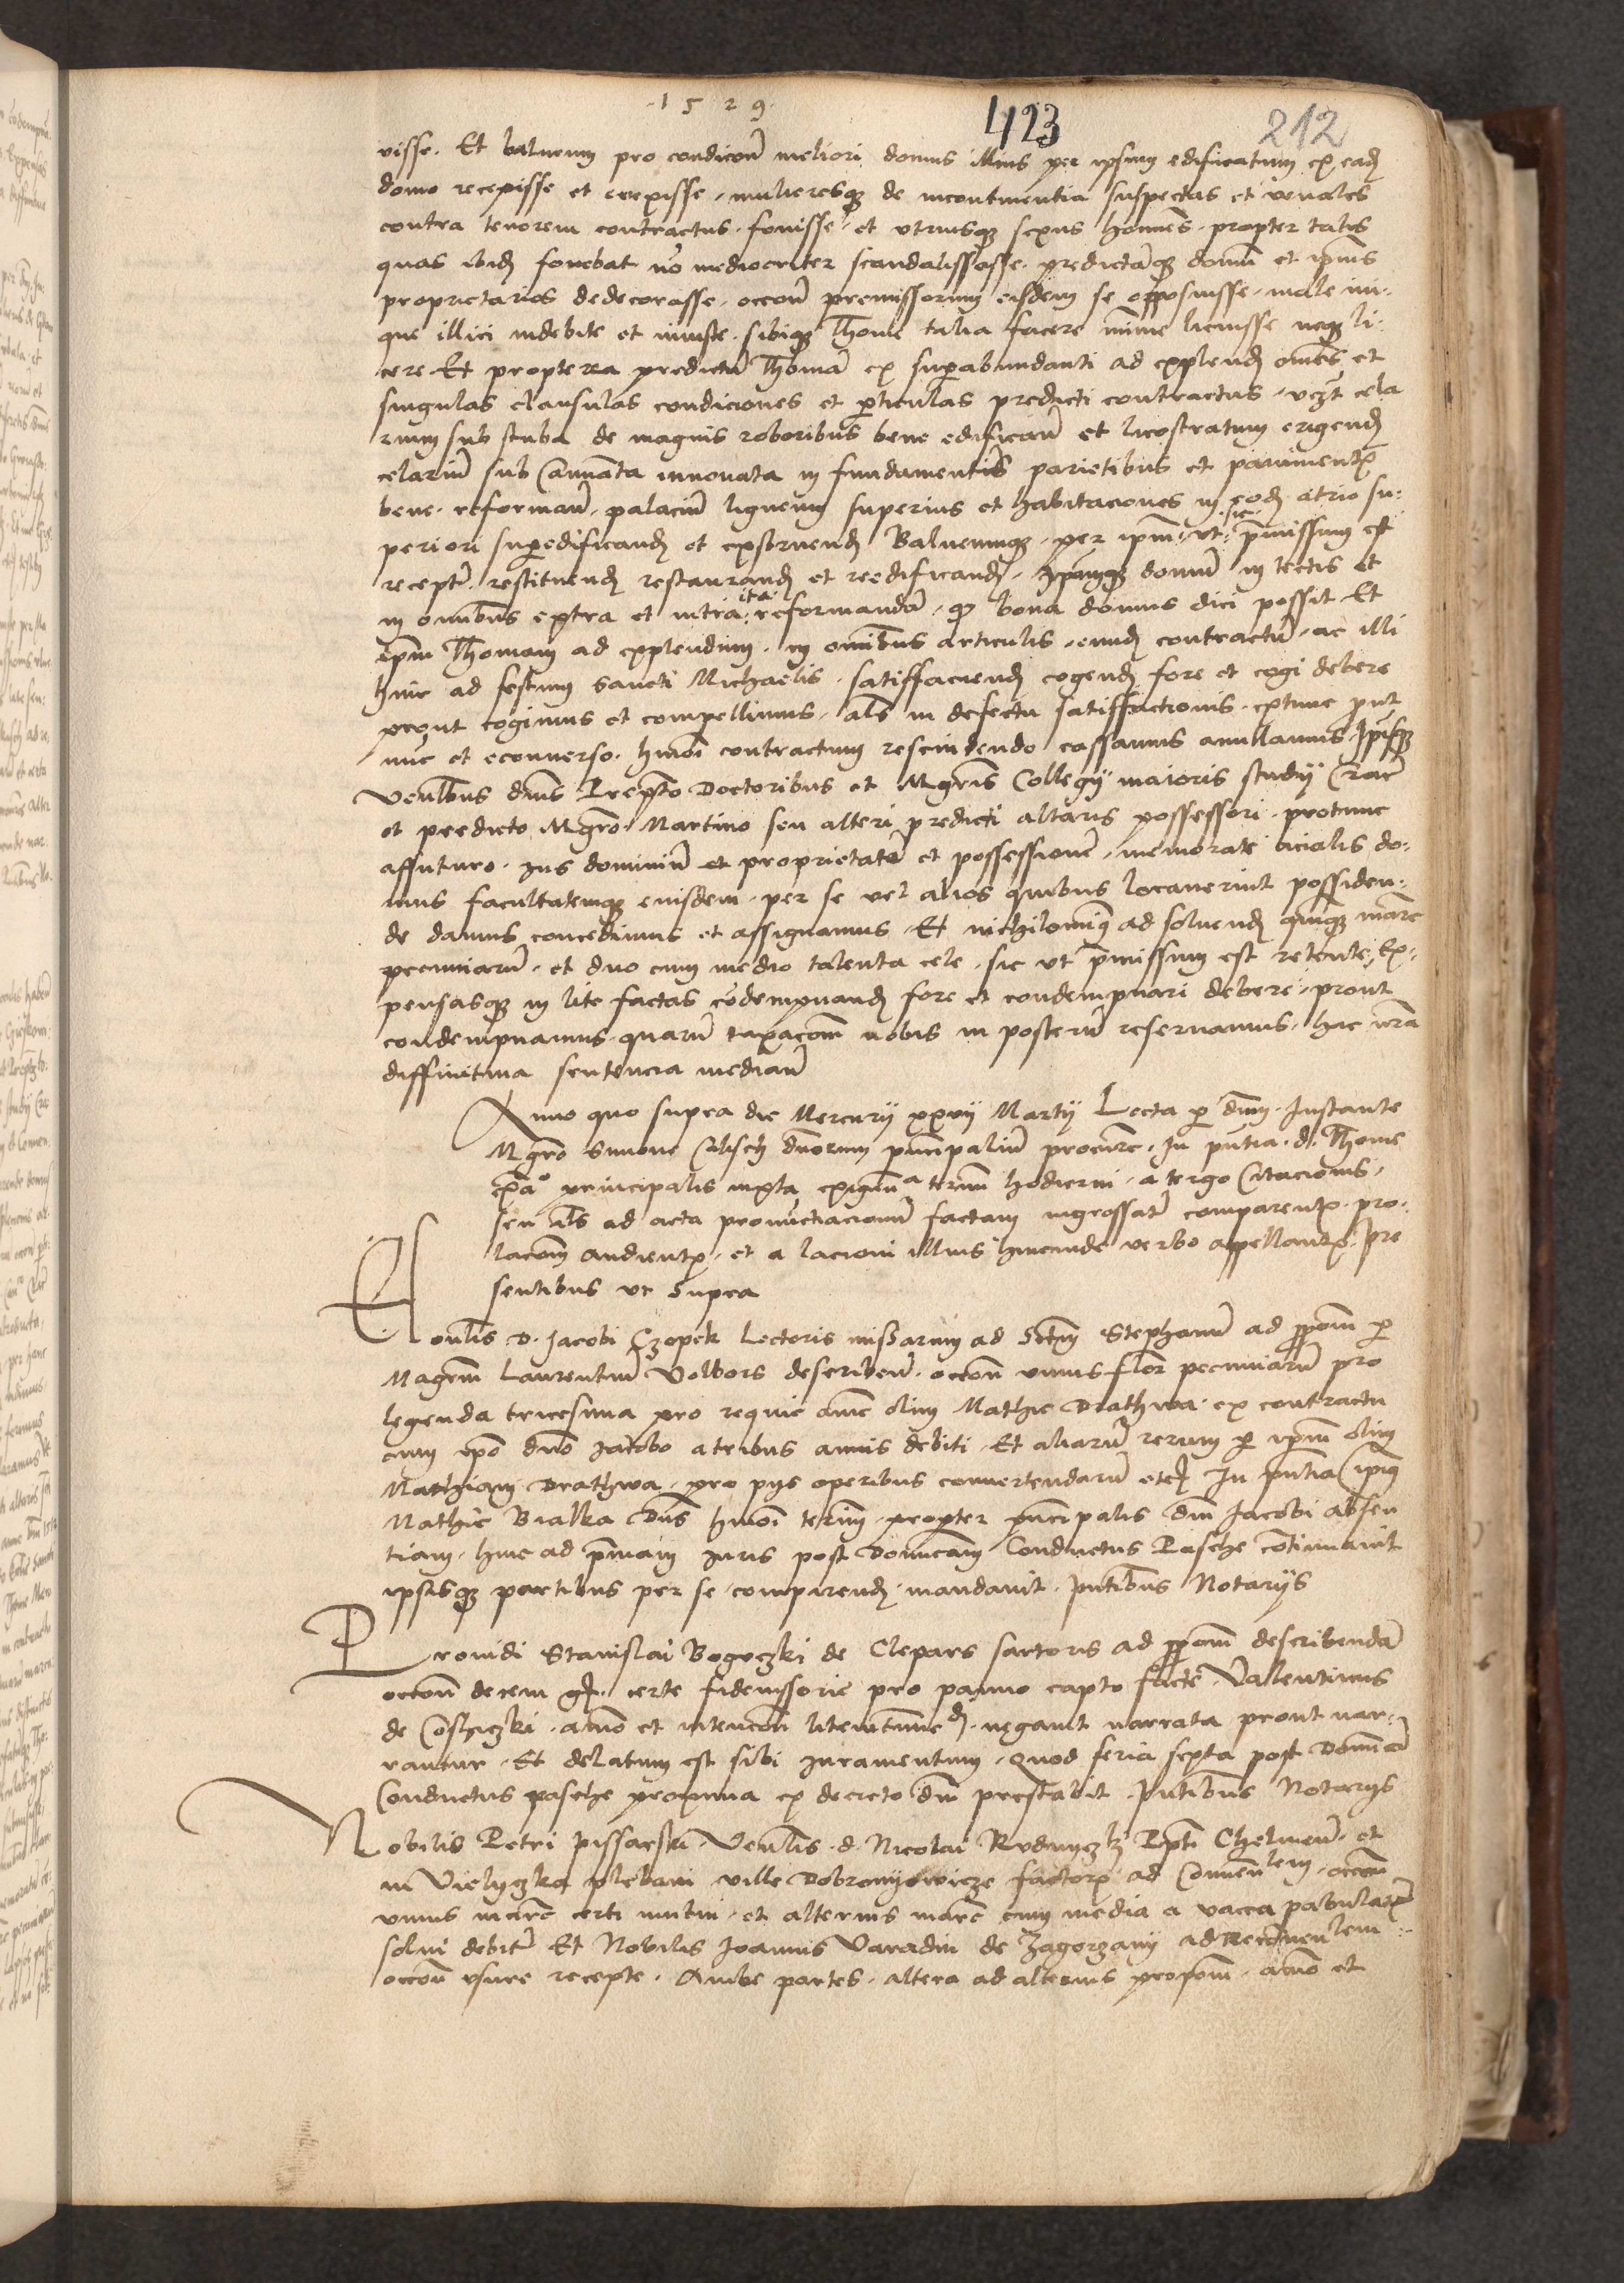 ·1529·
423
212
visse. Et balneum pro condicone meliori domus illius per ipsum edificatum ex eadem
domo recepisse et excepisse, mulieresque de incontinentia suspectas et venales
contra tenorem contractus fovisse, et utriusque sexus homines propter tales
quas ibidem fovebat non mediocriter scandalissasse, predictamque domum et ipsius
proprietarios dedecorasse, occone premissorum eisdem se opposuisse, male ini-
que illici indebite et iniuste, sibique Thome talia facere minime licuisse neque li-
cere Et propterea predictum Thomam ex superabundanti ad explendum omnes et
singulas clausulas condiciones et particulas predicti contractus, videlicet cela
rium sub stuba de magnis roboribus bene edificand et licostratum erigend
celarium sub caminata innovata in fundamentis parietibus et pavimentis
bene reformand, palacium ligneum superius et habitaciones in eodem atrio su-
periori superedificand et exstruend Balneumque, per ipsum, ut sic premissum est
receptum, restituend restaurand et reedificand, ipsamque domum in tectis et
in omnibus extra et intra ita reformandam, quod bona domus dici possit Et
ipsum Thomam ad explendum in omnibus articulis, eundem contractum, ac illi
hinc ad festum Sancti Michaelis satisfaciend cogend fore et cogi debere
prout cogimus et compellimus, alias in defectu satisfactionis extunc prout
nunc et econverso, huiusmodi contractum rescindendo cassamus anullamus, Ipsisque
Venerabilibus dominis Preposito Doctoribus et Magistris Collegii maioris studii Crac
et predicto Magistro Martino seu alteri predicti altaris possessori protunc
affuturo, Ius dominium et proprietatem et possessionem, memorate acialis do-
mus facultatemque eiusdem per se vel alios quibus locaverint possiden-
de damus concedimus et assignamus, Et nichilominus ad solvend quinque marc
pecuniarum, et duo cum medio talenta cele, sic ut premissum est retente, Ex-
pensasque in lite factas condempnand fore et condempnari debere, prout
condempnamus, quarum taxacionem nobis in posterum reservamus, hac nostra
diffinitiva sentencia mediante
Anno quo supra die Mercurii xxvii Martii Lecta per dominum, Instante
Magistro Simone dominorum principalium procuratore, In presentia d. Thome
ex adverso principalis iuxta exigentiam termini hodierni, a tergo Citacionis,
seu alias ad acta pronunctiacionum factam ingrossatum comparentis, pro-
lacionem audientis, et a lacione illius hincinde verbo appellantis. Pre
sentibus ut Supra
Honorabilis D. Jacobi Czopek Lectoris missarum ad Sanctum Stephanum ad proposicionem per
Magistrum Laurentium Volbors describend, occone unius flor pecuniarum pro
legenda tricesima pro requie anime olim Mathie Drathwa, ex contractu
cum ipso domino Jacobo a tribus annis debiti, Et aliarum rerum per ipsum olim
Mathiam Drathwa, pro piis operibus convertendarum etc. In presentia ipsius
Mathie Bialka Dominus huiusmodi terminum, propter principalis domini Jacobi absen
tiam, hinc ad primam Iuris post Dominicam Conductus Pasche continuavit
ipsisque partibus per se comparend mandavit. Presentibus Notariis
Providi Stanislai de Clepars sartoris ad proposicionem describendam
occone decem gr. certe fideiussorie pro panno capto facte, Vallentinus
de animo et intencone litem contestand, negavit narrata prout nar-
rantur, Et delatum est sibi Iuramentum, Quod feria sexta post Dominicam
Conductus pasche proxima ex decreto domini prestabit. Presentibus Notariis
Nobilis Petri Pissarski, Venerabilis d. Nicolai Prepositi Chelmen, et
in Vielyczka plebani ville factoris ad Convencionalem, occone
unius marce certi mutui, et alterius marce cum media a vacca
solvi debitarum Et Nobilis Joannis Varadin de Zagorzany ad Reconvencionalem
occone usure recepte. Ambe partes, altera ad alterius proposicionem, animo et